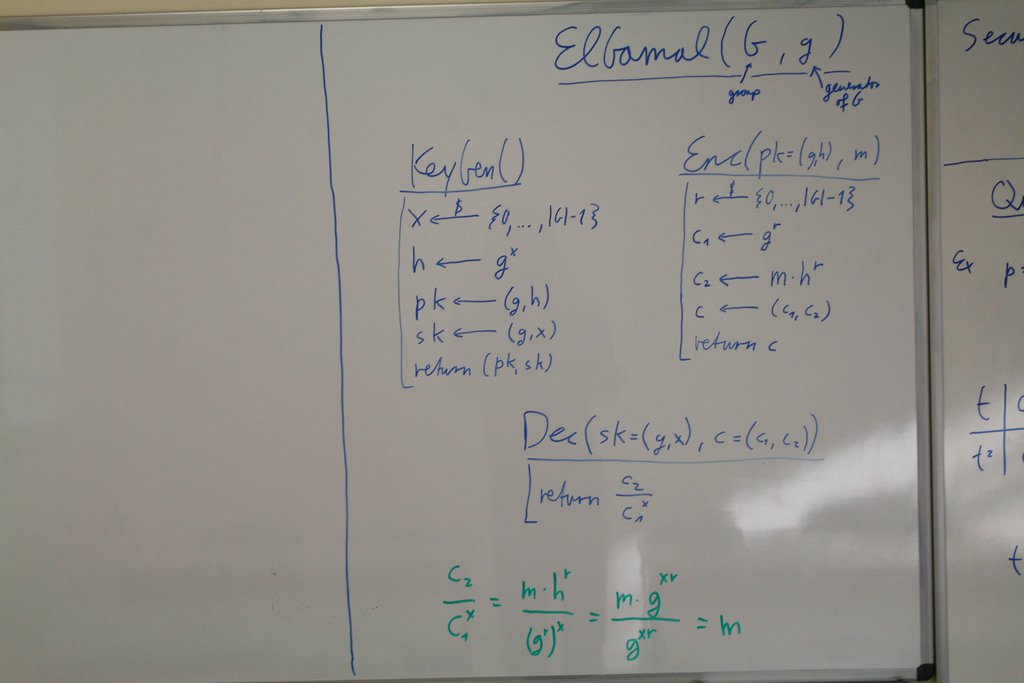 ElGamal(G, g)
group
generator
of G
KeyGen()
x ←$ {0,...,|G|-1}
h ← g^x
pk ← (g,h)
sk ← (g,x)
return (pk,sk)
Enc(pk=(g,h), m)
r ←$ {0,...,|G|-1}
c₁ ← g^r
c₂ ← m·h^r
c ← (c₁,c₂)
return c
Dec(sk=(g,x), c=(c₁,c₂))
return c₂/c₁^x
c₂/c₁^x = m·h^r/(g^r)^x = m·g^xr/g^xr = m
Secu
Qu
Ex p=
t
t²
t